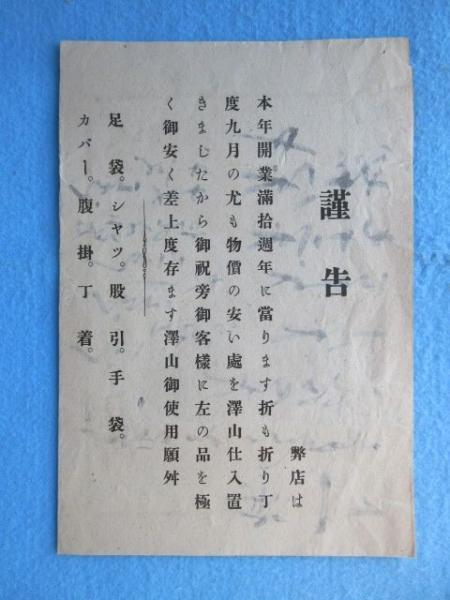 謹告
弊店は
本年開業滿拾週年に當ります折も折り丁
度九月の尤も物價の安い處を澤山仕入置
きましたから御祝旁御客樣に左の品を極
く御安く差上度存ます澤山御使用願舛
足袋。シャツ。股引。手袋。
カバー。腹掛。丁着。